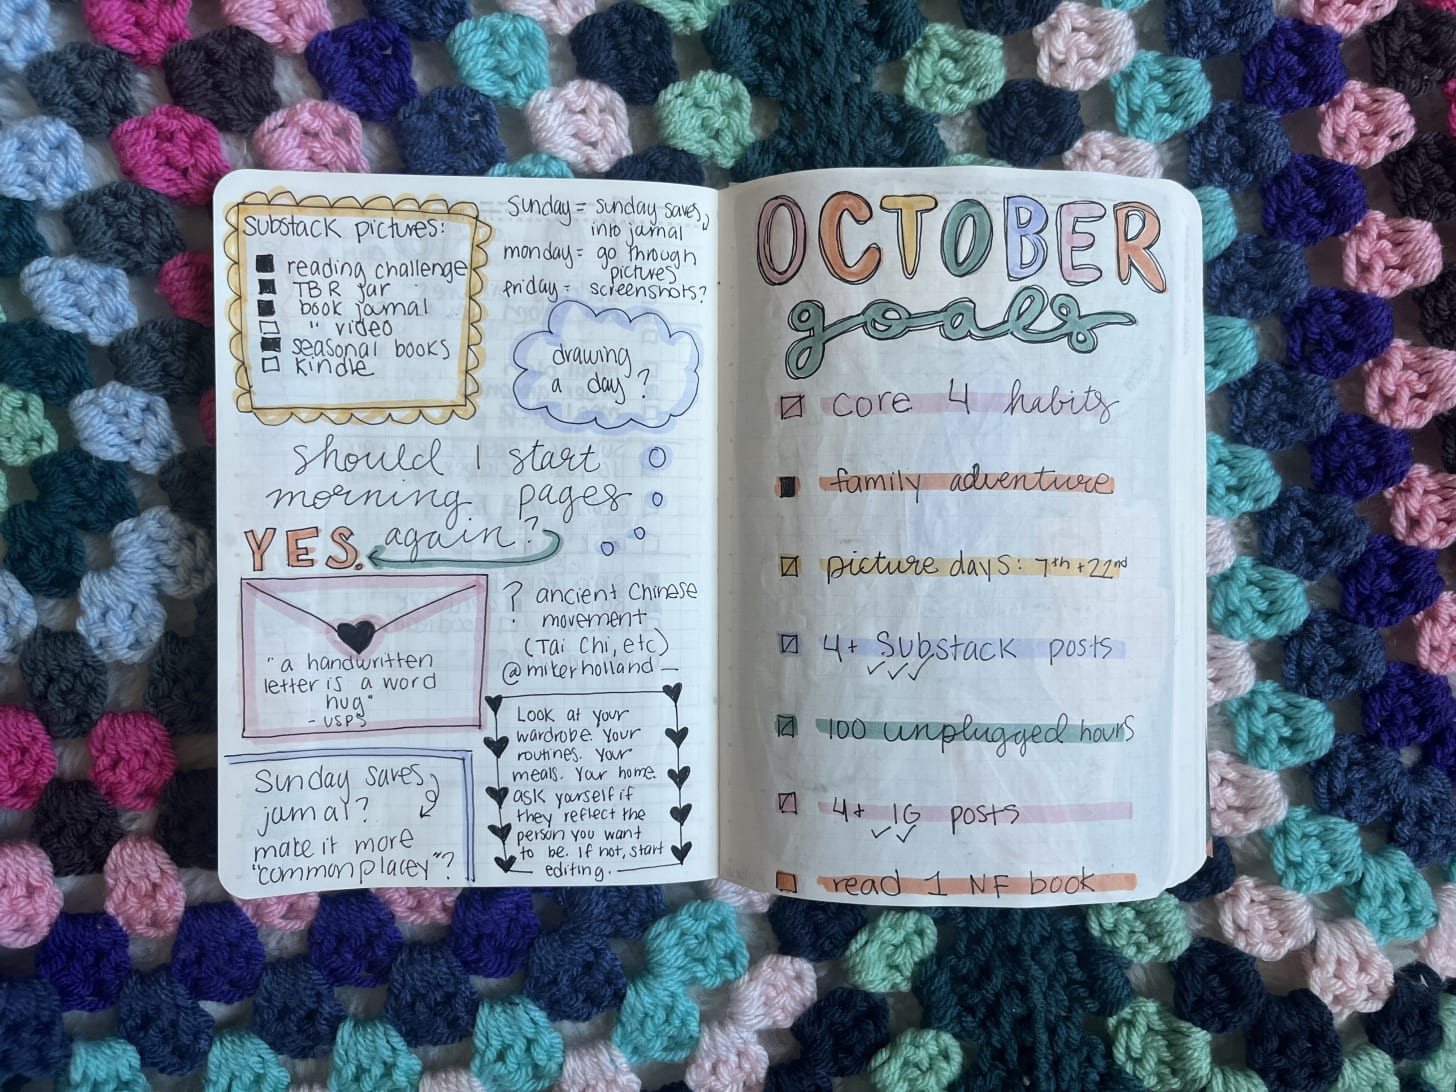 Substack pictures:
reading challenge
TBR jar
book journal
" video
seasonal books
kindle
Sunday = sunday saves
into journal
monday = go through
pictures
friday = screenshots?
drawing
a day?
should I start
morning pages
again?
YES.
"a handwritten
letter is a word
hug"
- USPS
? ancient Chinese
movement
(Tai Chi, etc)
@mikerholland
Look at your
wardrobe. Your
routines. Your
meals. Your home.
ask yourself if
they reflect the
person you want
to be. If not, start
editing.
Sunday saves
journal?
make it more
"commonplacey"?
OCTOBER
goals
core 4 habits
family adventure
picture days: 7th + 22nd
4+ Substack posts
100 unplugged hours
4+ IG posts
read 1 NF book